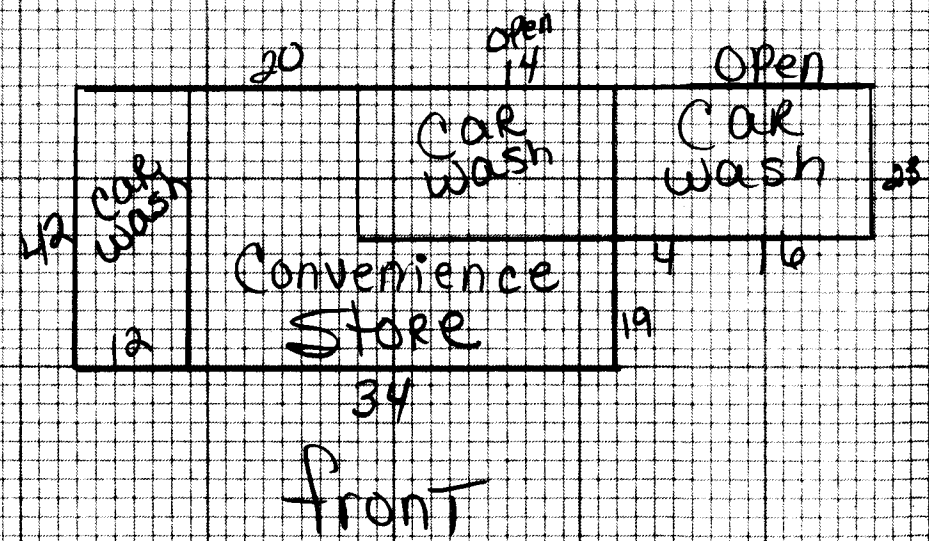 Open
20
14
Open
Car
wash
Car
wash
Car
wash
23
42
4
16
Convenience
Store
19
12
34
front